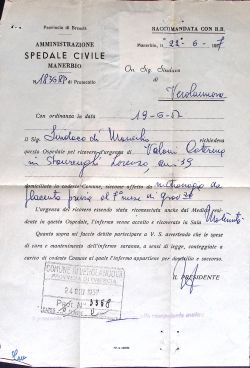 Provincia di Brescia
RACCOMANDATA CON R.R.
AMMINISTRAZIONE
SPEDALE CIVILE
MANERBIO
Manerbio, 22-6-195
N. 183GPP di Protocollo
On. Sig. Sindaco
di
Verolanuova
Con ordinanza in data 19-6-52
il Sig. Sindaco di Manerbio richiedeva
questo Ospedale pel ricovero d'urgenza di Valoni Caterina
in Lorenzo, anni 39
domiciliato in codesto Comune, siccome affetto da
placenta previa al mese di grav.za
L'urgenza del ricovero essendo stata riconosciuta anche dai Medici
di questo Ospedale, l'infermo venne accolto e ricoverato in Sala Maternità
Quanto sopra mi faccio debito partecipare a V. S. avvertendo che le spese
di cura e mantenimento dell'infermo saranno, a sensi di legge, conteggiate a
carico di codesto Comune al quale l'infermo appartiene per domicilio e soccorso.
IL PRESIDENTE
COMUNE DI VEROLANUOVA
PROVINCIA DI BRESCIA
24 GIU 1952
Prot. N.